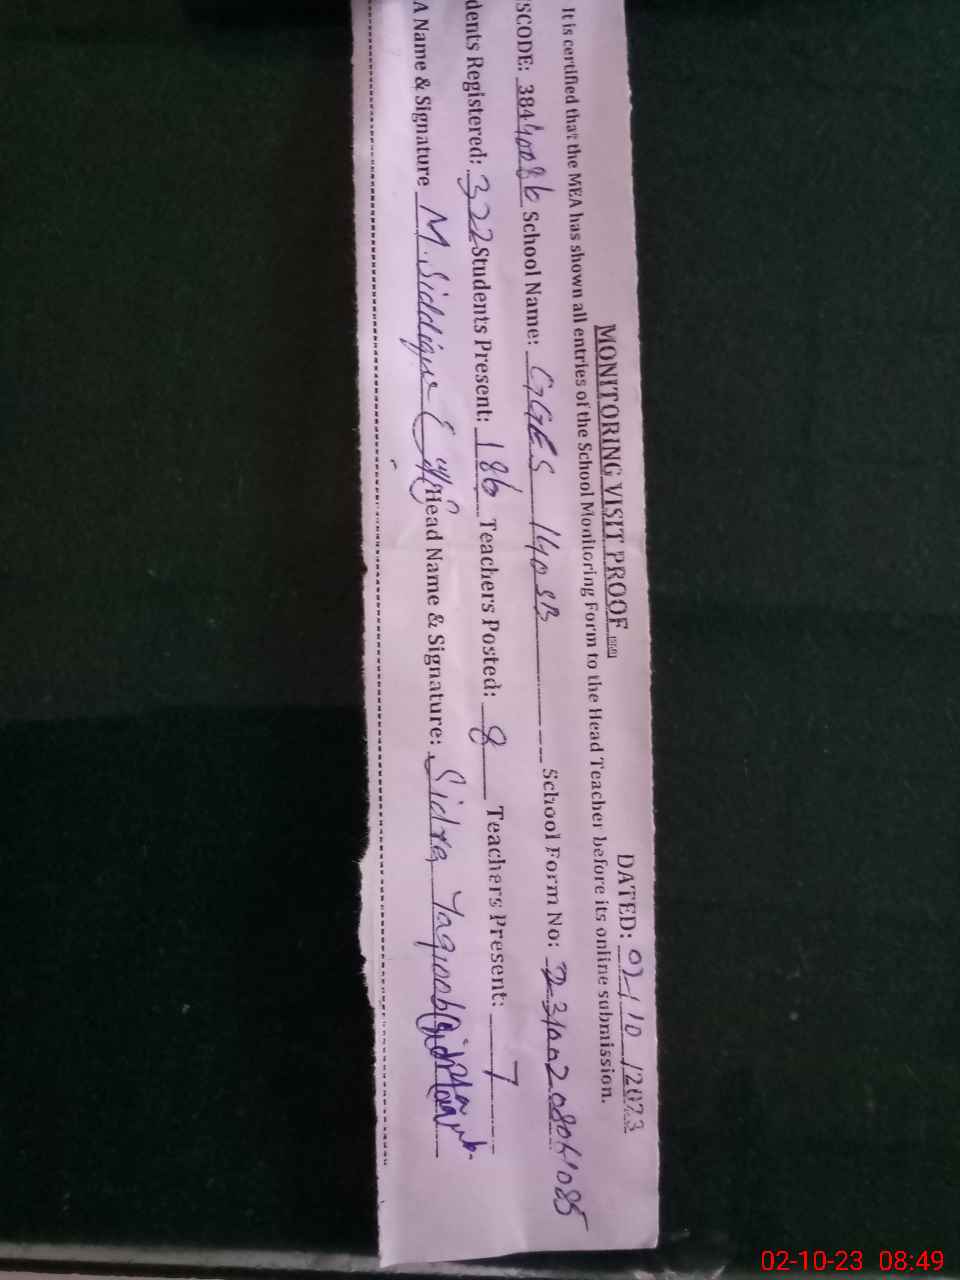 MONITORING VISIT PROOF
DATED: 02/10/2023
It is certified that the MEA has shown all entries of the School Monitoring Form to the Head Teacher before its online submission.
SCODE: 38440086 School Name: GGES 140 SB School Form No:
dents Registered: 322 Students Present: 186 Teachers Posted: 8 Teachers Present: 7
A Name & Signature M. Siddique Head Name & Signature: Sidra Yaqoob
02-10-23 08:49